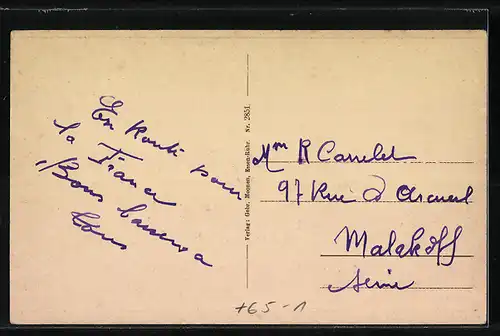 En Routi pour
la France
Bons baisers a
tous
Verlag: Gebr. Moppen, Essen-Ruhr. Nr. 2851.
Mm R Canelet
97 Rue d Arcueil
Malakoff
Seine
+65-1